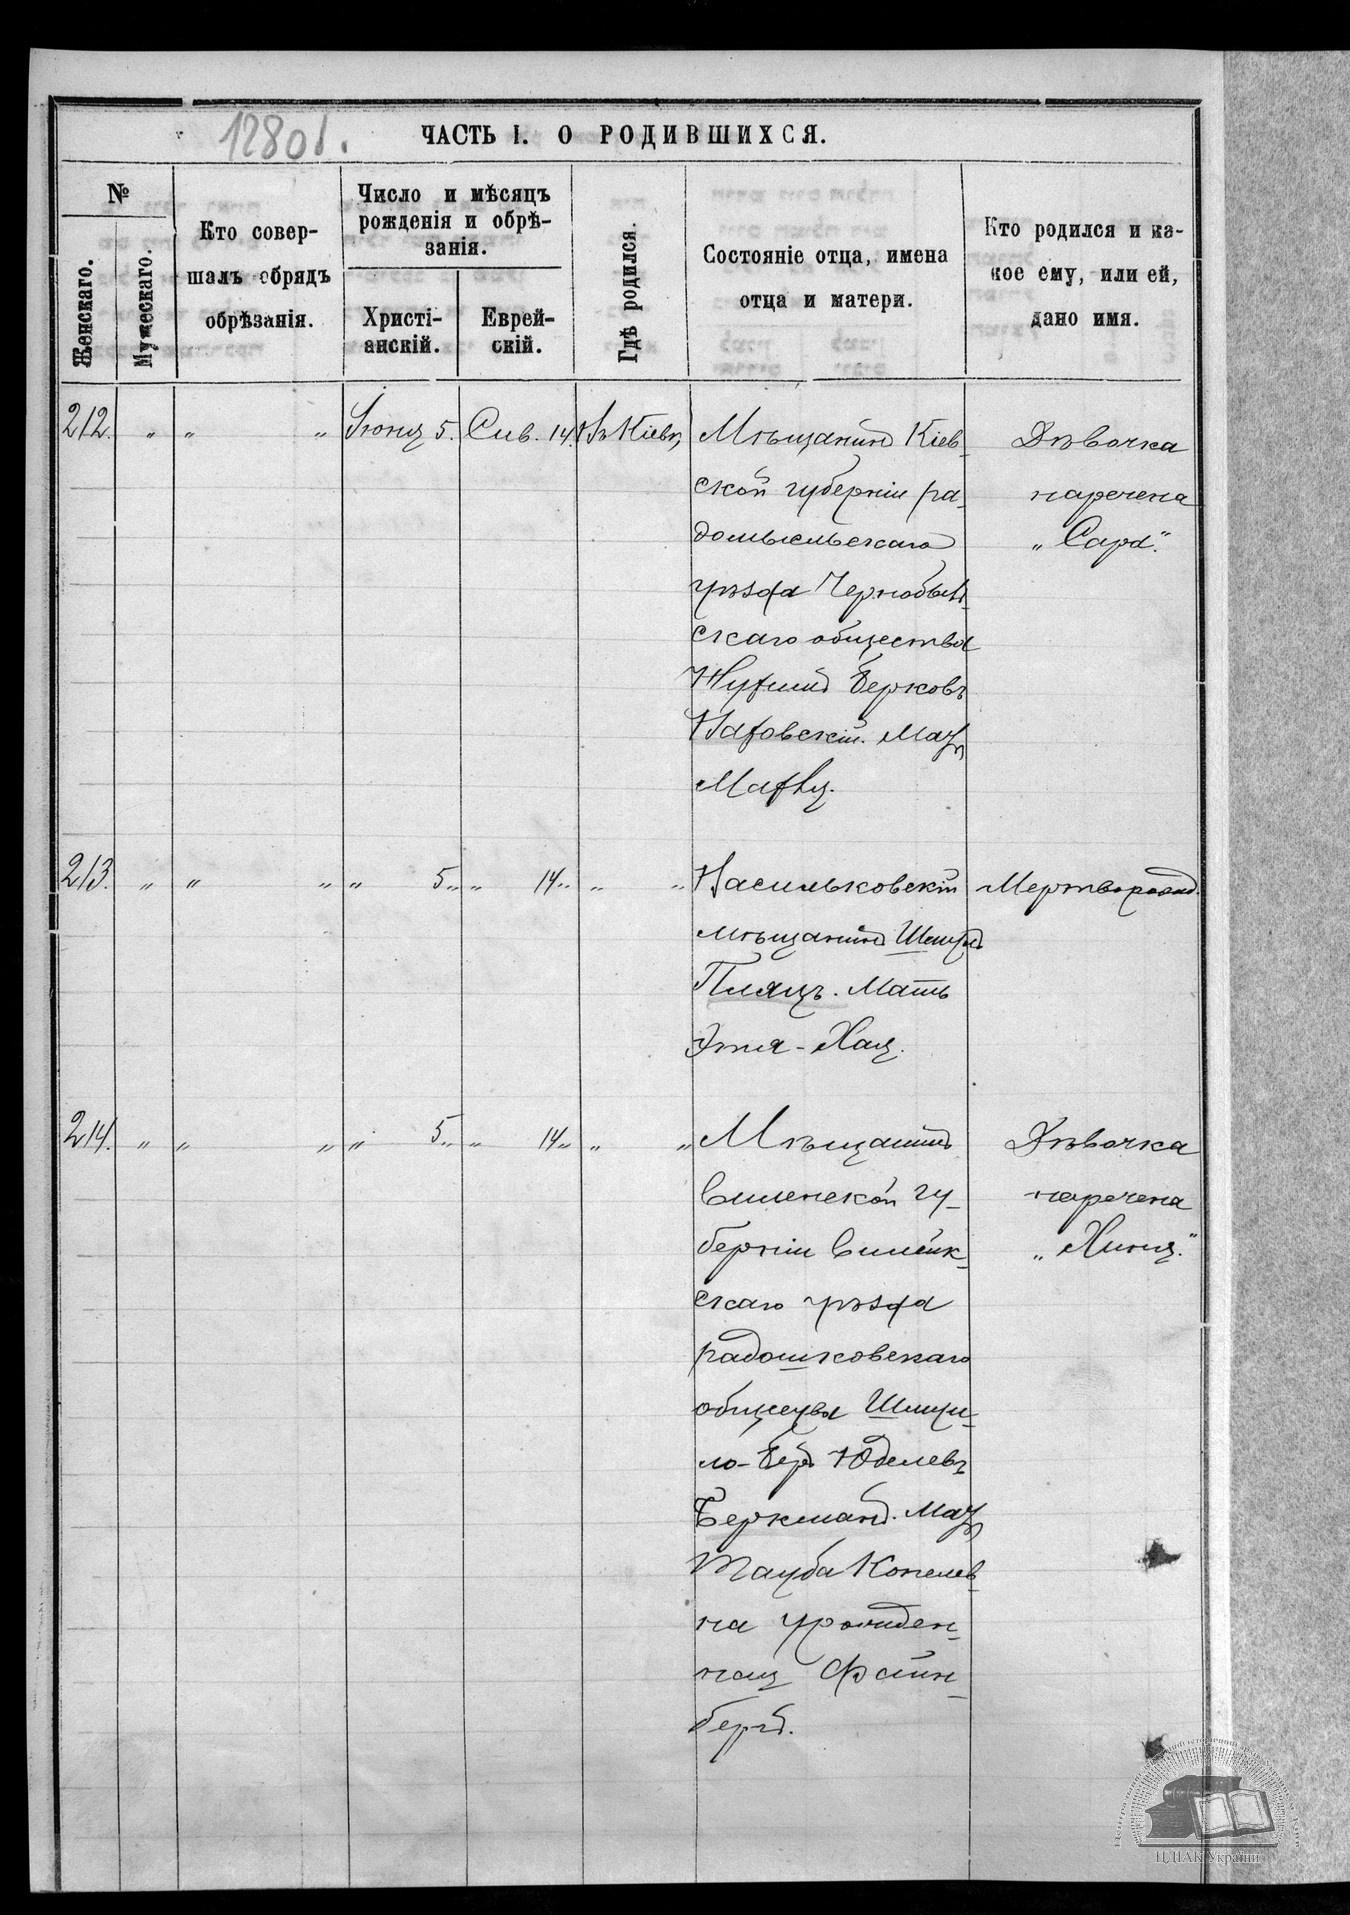 1280 1.
ЧАСТЬ I. О РОДИВШИХСЯ.
№
Женскаго.
Мужескаго.
Кто совер-
шалъ обрядъ
обрѣзанія.
Число и мѣсяцъ
рожденія и обрѣ-
занія.
Христі-
анскій.
Еврей-
скій.
Гдѣ родился.
Состояніе отца, имена
отца и матери.
Кто родился и ка-
кое ему, или ей,
дано имя.
212. " " " Іюня 5. Сив. 14. Въ Кіевѣ
Мѣщанинъ Кіев-
ской губерніи ра-
домысльскаго
уѣзда Чернобыл-
скаго общества
Берковъ
Мать
Дѣвочка
наречена
„Сара".
213. " " " " 5 " " 14 " " "
Васильковскій
мѣщанинъ Шмуль
Пляцъ. Мать
Этя-Хая.
Мертворожд.
214. " " " " 5 " " 14 " " "
Мѣщанинъ
Виленской гу-
берніи Вилейк-
скаго уѣзда
радошковскаго
общества Шмуи-
ло-Беръ Юделевъ
Беркманъ. Мать
Тауба Копелев-
на урожден-
ная Файн-
бергъ.
Дѣвочка
наречена
„Хиня."
ЦДІАК України